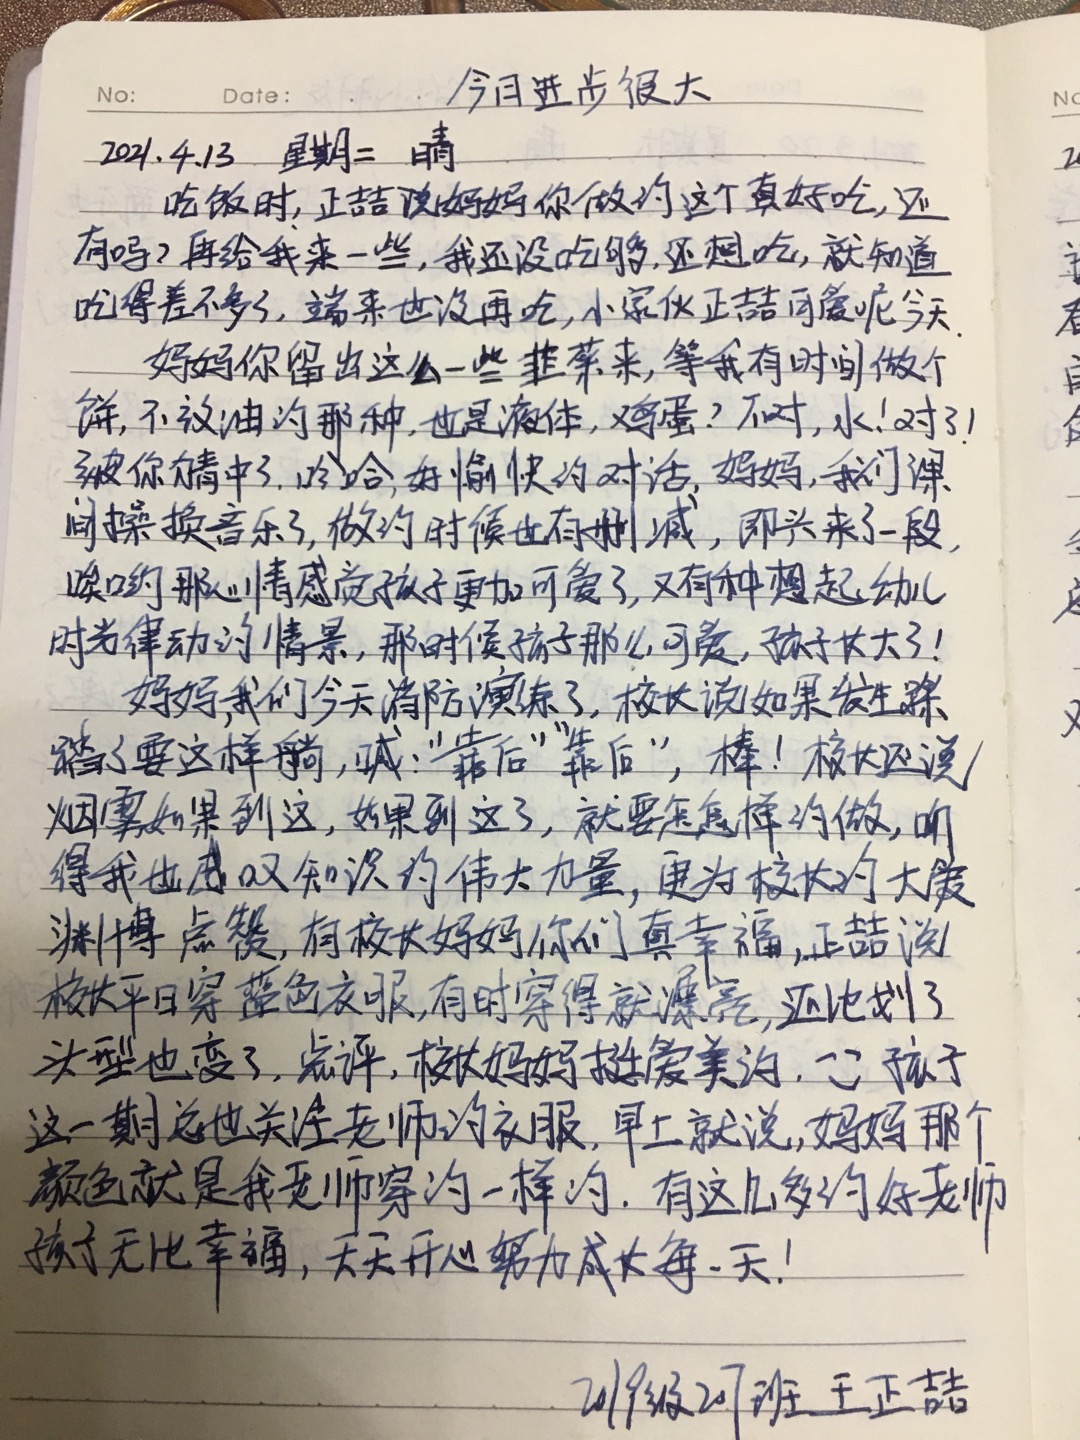 No: Date: 今日进步很大
2021.4.13 星期二 晴
吃饭时,正喆说妈妈你做的这个真好吃,还
有吗?再给我来一些,我还没吃够,还想吃,就知道
吃得差不多了,端来也没再吃,小家伙正喆可爱呢今天.
妈妈你留出这么一些韭菜来,等我有时间做个
饼,不放油的那种,也是液体,鸡蛋?不对,水!对了!
被你猜中了.哈哈,好愉快的对话,妈妈,我们课
间操换音乐了,做的时候也有删减,即兴来了一段,
那心情感觉孩子更加可爱了,又有种想起幼儿
时光律动的情景,那时候孩子那么可爱,孩子长大了!
妈妈,我们今天消防演练了,校长说如果发生踩
踏了要这样躺,喊:"靠后""靠后",棒!校长还说
烟雾如果到这,如果到这了,就要怎怎样的做,听
得我也感叹知识的伟大力量,更为校长的大爱
渊博点赞,有校长妈妈你们真幸福,正喆说
校长平日穿蓝色衣服,有时穿得就漂亮,还比划了
头型也变了.点评,校长妈妈挺爱美的.孩子
这一期总也关注老师的衣服,早上就说,妈妈那个
颜色就是我老师穿的一样的.有这么多的好老师
孩子无比幸福,天天开心努力成长每一天!
2019级207班 王正喆